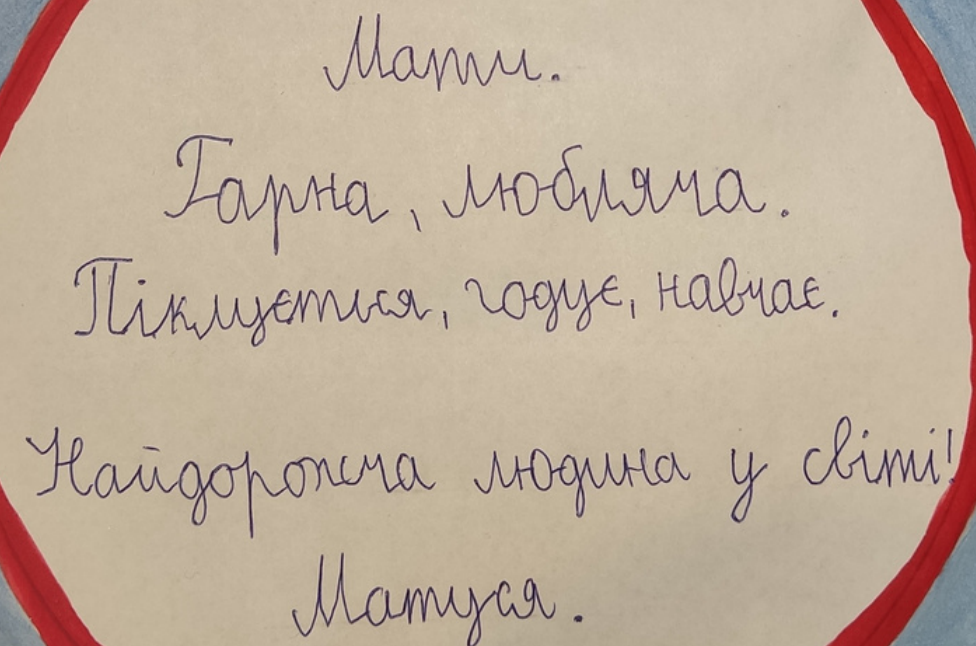 Мати.
Гарна, любляча.
Піклується, годує, навчає.
Найдорожча людина у світі!
Матуся.